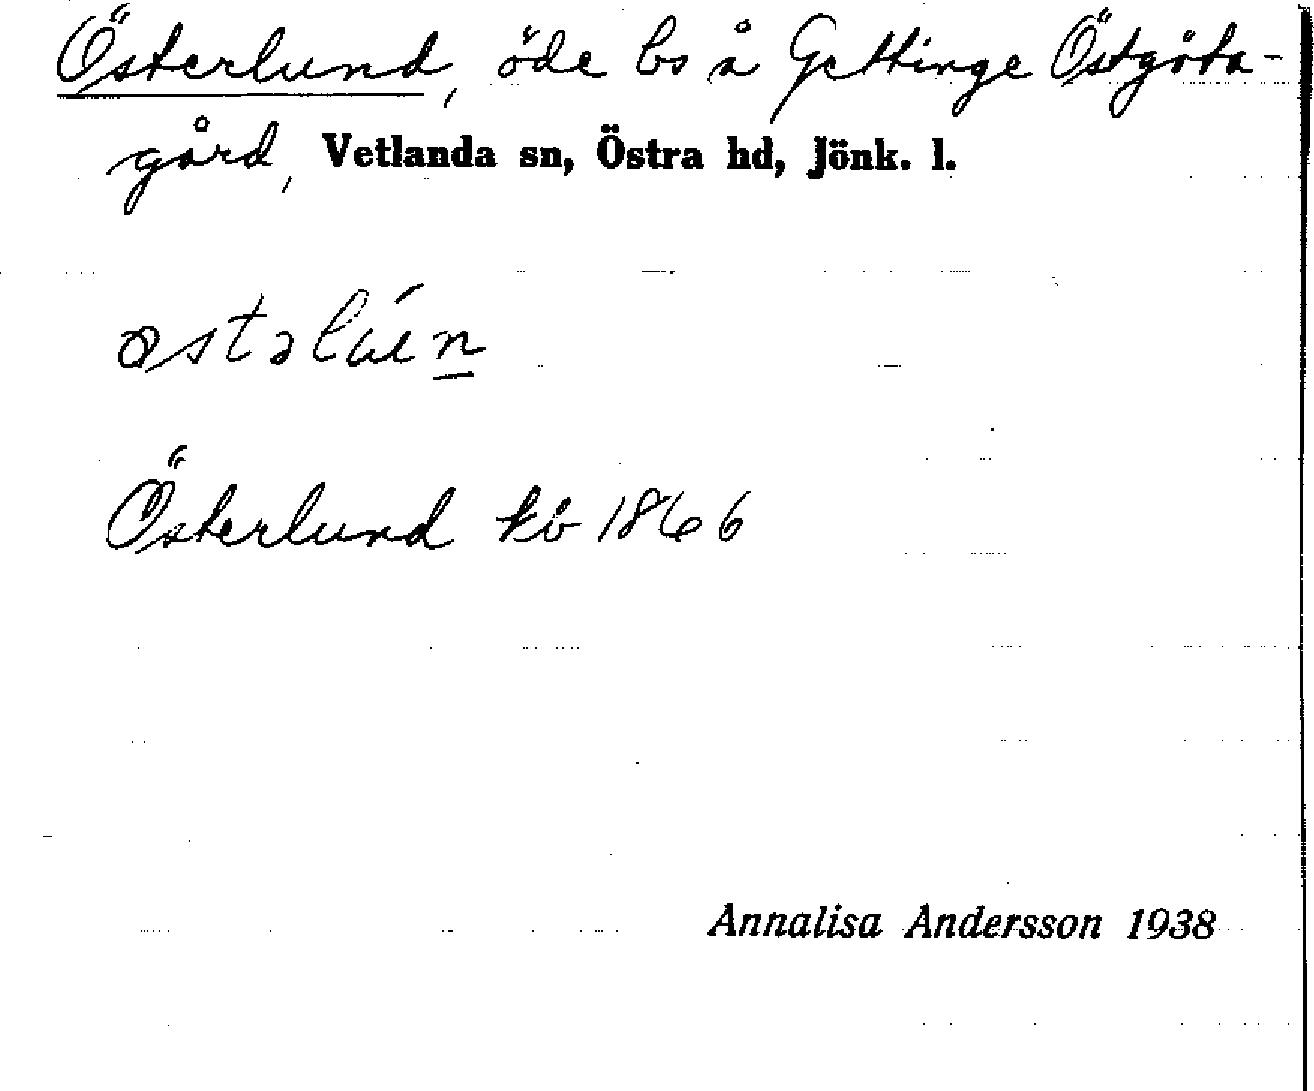 Österlund, öde bs å Gettinge Östgöta-
gård, Vetlanda sn, Östra hd, Jönk. l.
Österlund kb 1866
Annalisa Andersson 1938